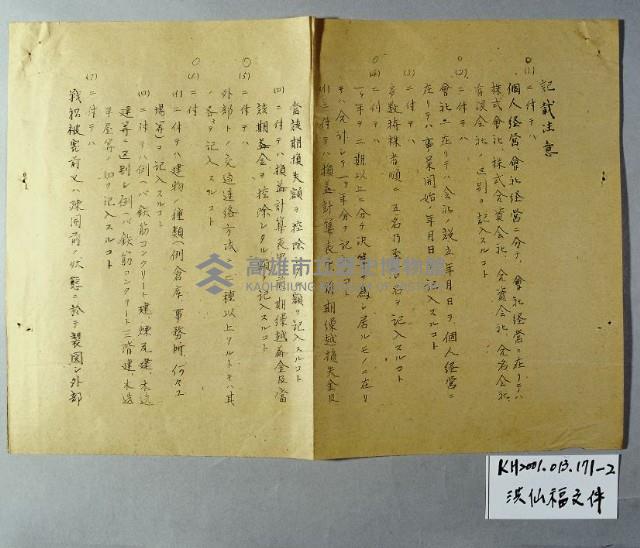 記載注意
(1)ニ付テハ
個人経営、會社経営ニ分チ、會社経営ニ在リテハ
株式會社、株式合資會社、合資會社、合名會社、
有限会社ノ区別ヲ記入スルコト
(2)ニ付テハ
會社ニ在リテハ会社ノ設立年月日ヲ、個人経営ニ
在リテハ事業開始ノ年月日ヲ記入スルコト
(3)ニ付テハ
多数持株者順ニ五名乃至十名ヲ記入スルコト
(4)ニ付テハ
一ヶ年ヲ二期以上ニ分チ決算ヲ為シ居ルモノニ在リ
テハ合計シテ一ヶ年分ヲ記入スルコト
(1)ニ付テハ損益計算表ノ前期繰越損失金及
當該期損失額ヲ控除シタル額ヲ記入スルコト
(4)ニ付テハ損益計算表ノ前期繰越益金及當
該期益金ヲ控除シタル額ヲ記入スルコト
(5)ニ付テハ
外部トノ交通連絡方法、二種以上アルトキハ其
ノ各々ヲ記入スルコト
(6)ニ付テハ
(1)ニ付テハ建物ノ種類(例倉庫、事務所、何々工
場等)ヲ記入スルコト
(4)ニ付テハ例ヘバ鉄筋コンクリート建、煉瓦建、木造
建等ノ区別シ例ヘバ鉄筋コンクリート三階建、木造
平屋等ノ如ク記入スルコト
(7)ニ付テハ
戦招被害前又ハ疎開前ノ状態ニ於テ製図シ外部
高雄市立歷史博物館
KAOHSIUNG MUSEUM OF HISTORY
KH2001.013.171-2
洪仙福文件